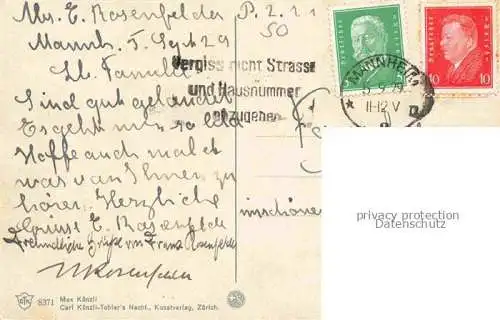 Abs. E. Rosenfelder
Mannh. 5. Sept 29
P. 2. 21
50
Deutsches Reich
Deutsches Reich
5
10
MANNHEIM
5.9.29
11-12 V
Vergiss nicht Strasse
und Hausnummer
anzugeben
Lb. Familie
Sind gut gelandet
Es geht mir so lala
Hoffe auch mal et
was von Ihnen zu
hören. Herzliche
Grüsse E. Rosenfelder
Freundliche Grüsse von Franz Rosenfelder
privacy protection
Datenschutz
8371
Max Känzli
Carl Künzli-Tobler's Nachf., Kunstverlag, Zürich.